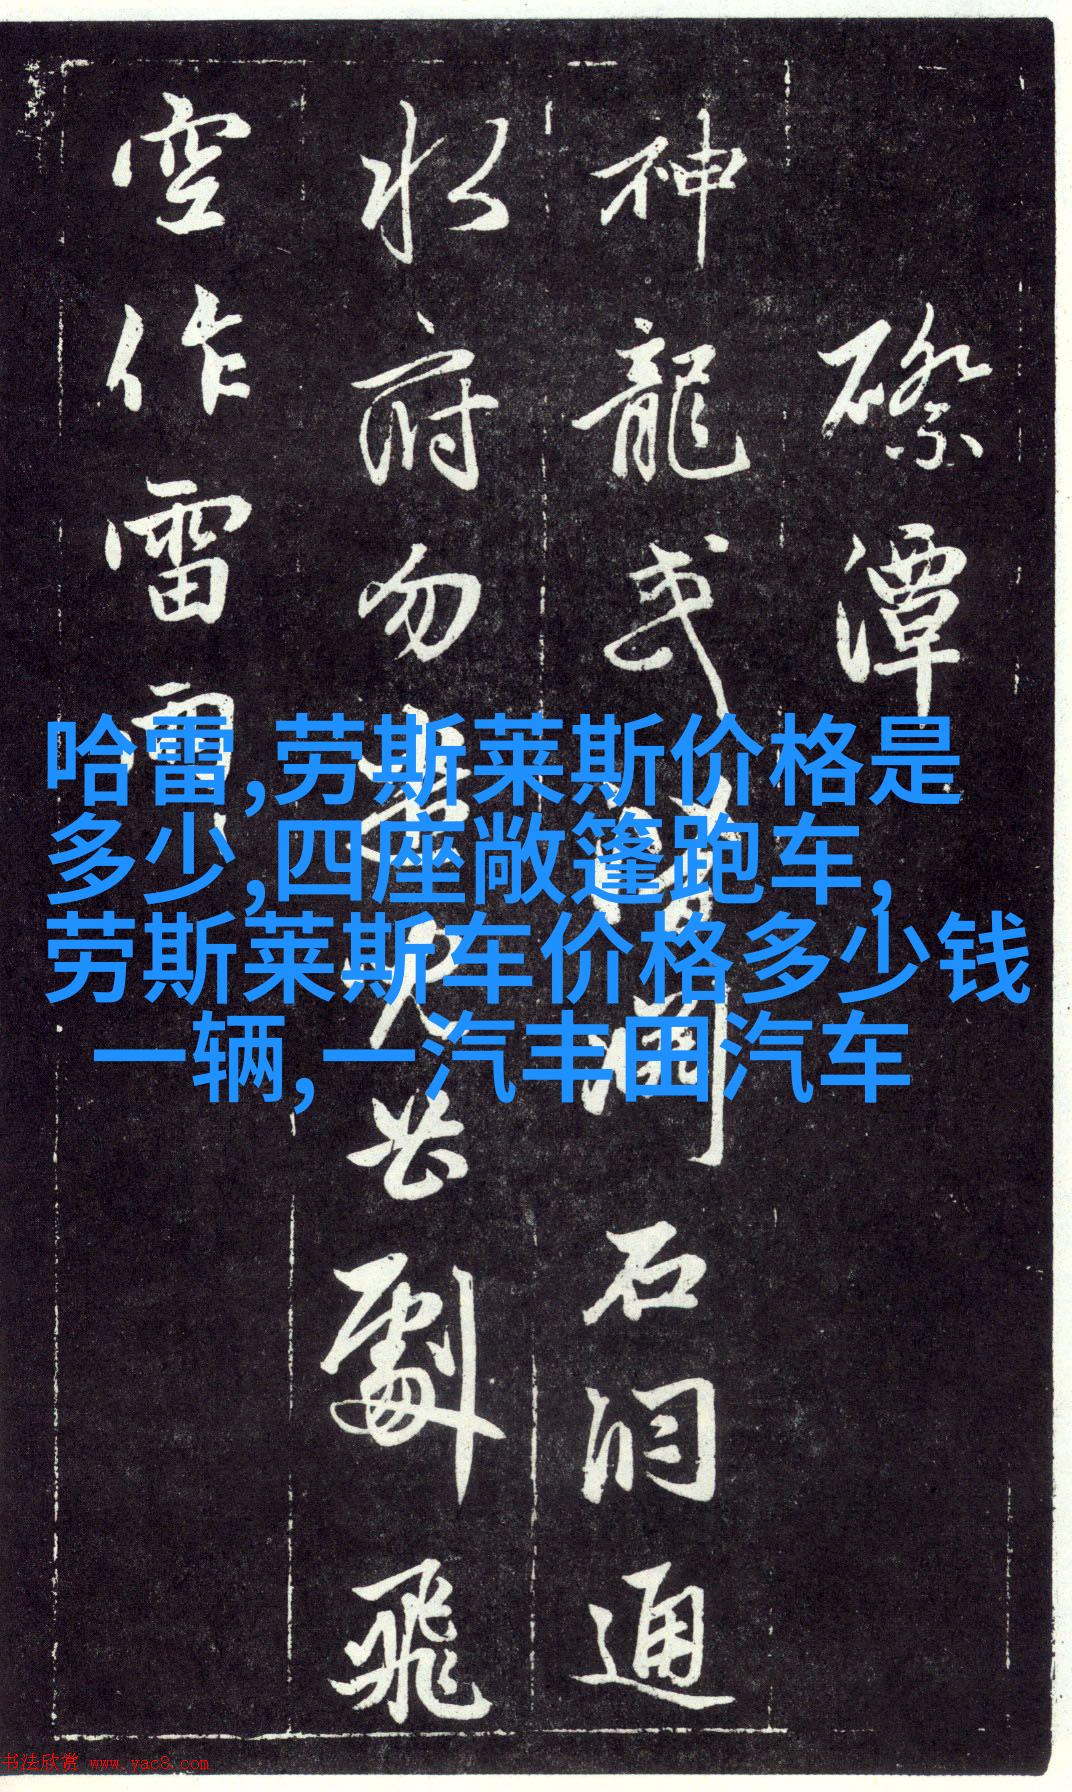 潭
神龍或石洞通
水府勿劇飛
空作雷雨
哈雷,劳斯莱斯价格是
多少,四座敞篷跑车,
劳斯莱斯车价格多少钱
一辆,一汽丰田汽车
书法欣赏 www.yac8.com